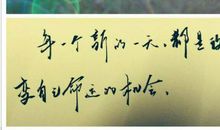 每一个新的一天,都是改
变自己命运的机会.